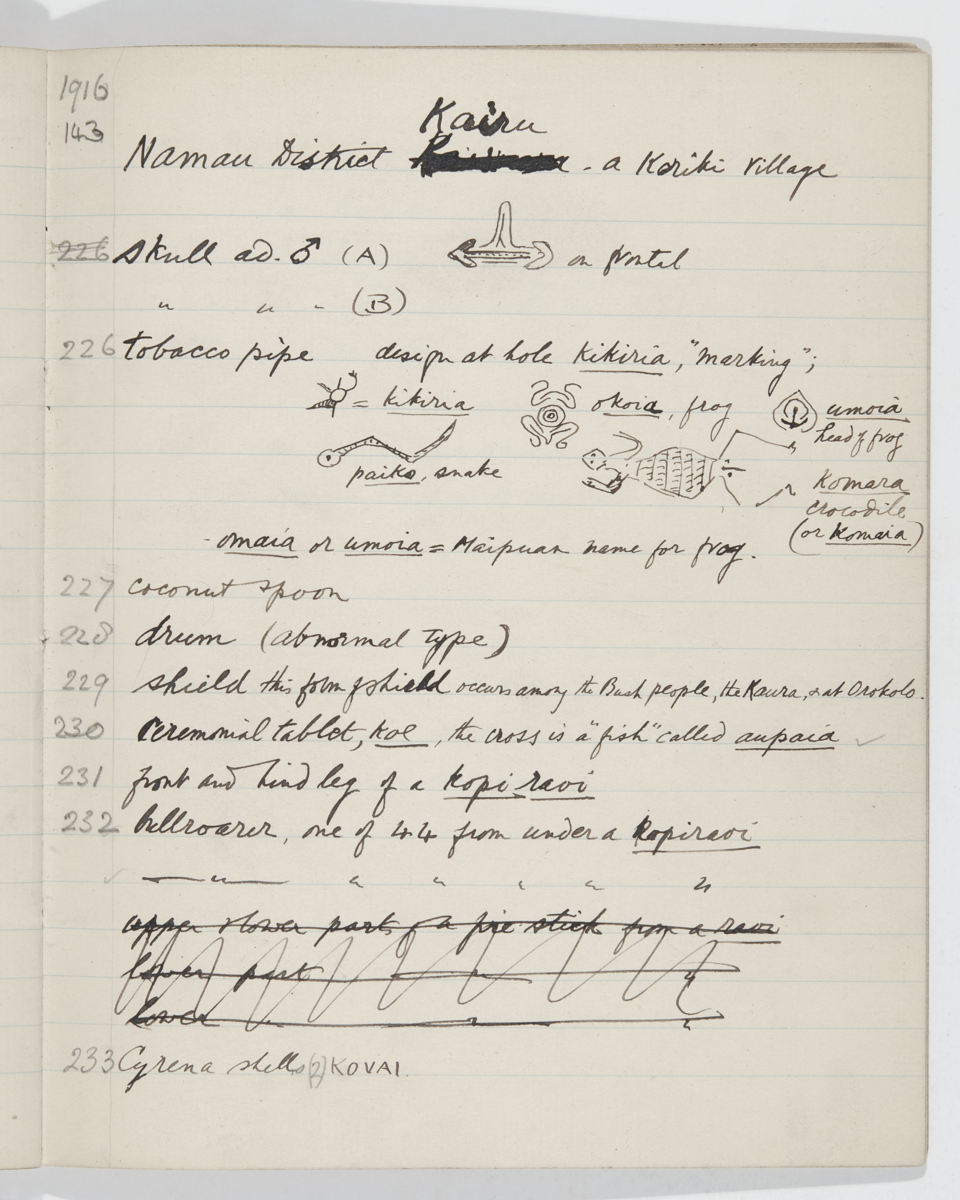 1916
143
Kairu
Namau District - a Koriki village
226 skull ad. ♂ (A) on frontal
" " " (B)
226 tobacco pipe design at hole kikiria, "marking";
= kikiria okoia, frog umoia
head of frog
paiko, snake Komara
crocodile
(or Komaia)
- omaia or umoia = Maipuan name for frog.
227 coconut spoon
228 drum (abnormal type)
229 shield this form of shield occurs among the Bush people, the Kaura, & at Orokolo.
230 ceremonial tablet, koe, the cross is a "fish" called aupaia ✓
231 front and hind leg of a kopi-ravi
232 bullroarer, one of 44 from under a kopiravi
✓ — " — " " " " "
upper & lower part of a fire stick from a ravi
lower part " "
lower " " "
233 Cyrena shells (2) KOVAI.